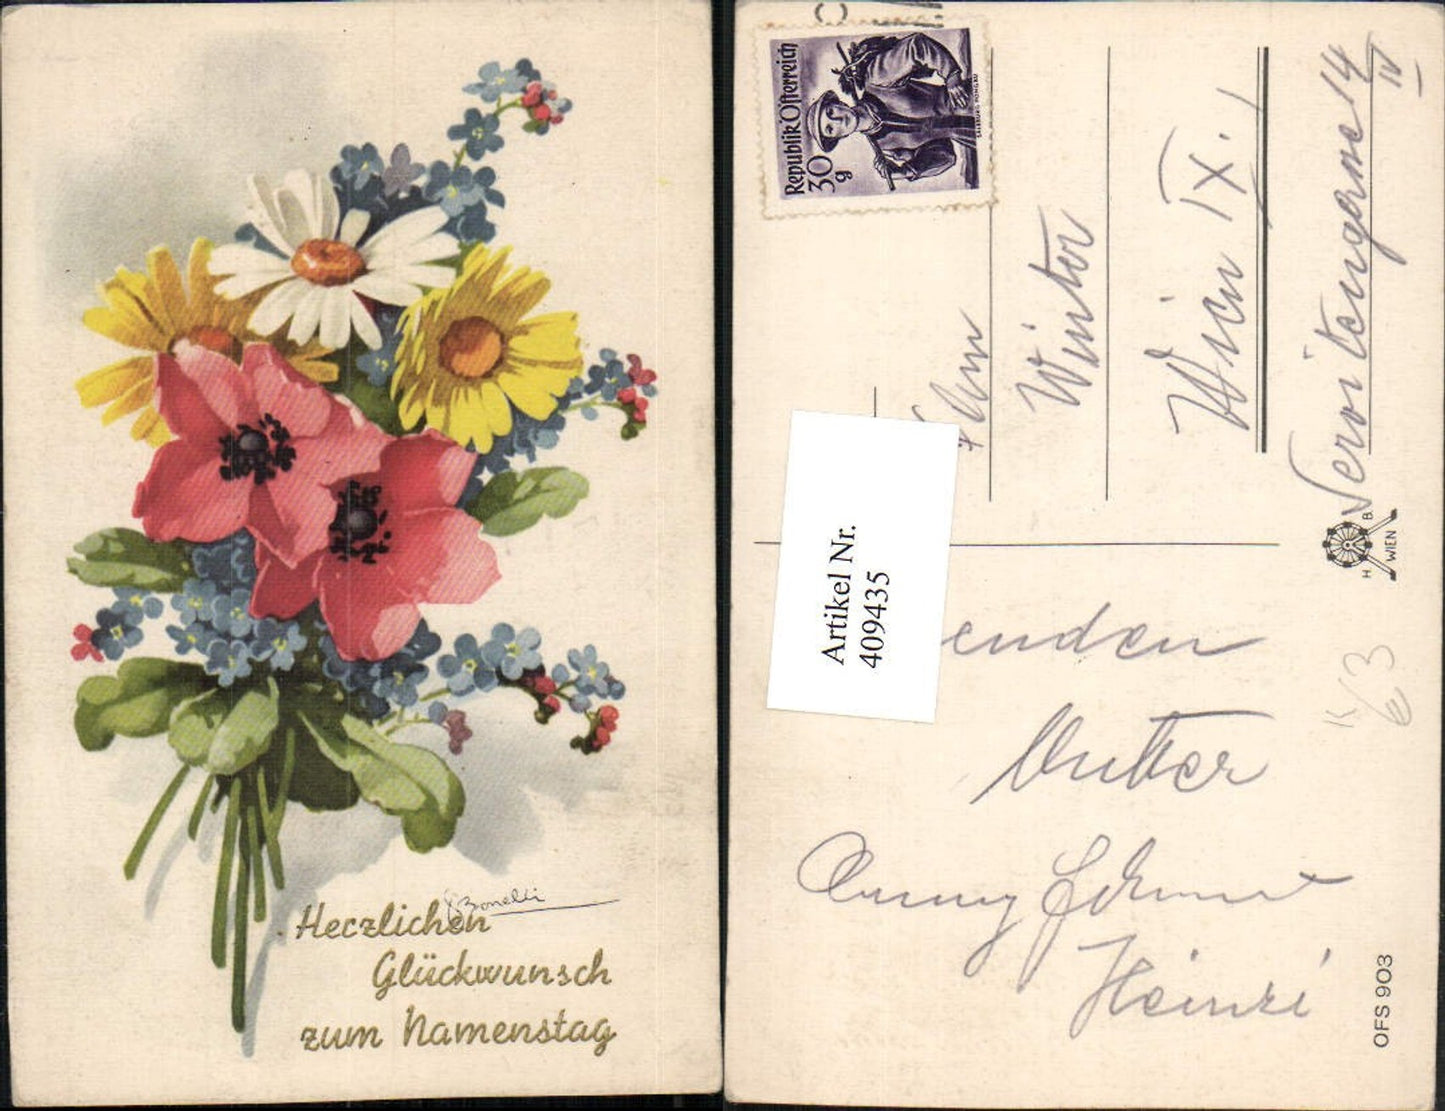 Bonelli
Herzlichen
Glückwunsch
zum Namenstag
Republik Österreich
30
g
Winter
Wien IX.
14
IV
Artikel Nr.
409435
H
B
WIEN
enden
Mutter
Heinzi
K
63
OFS 903